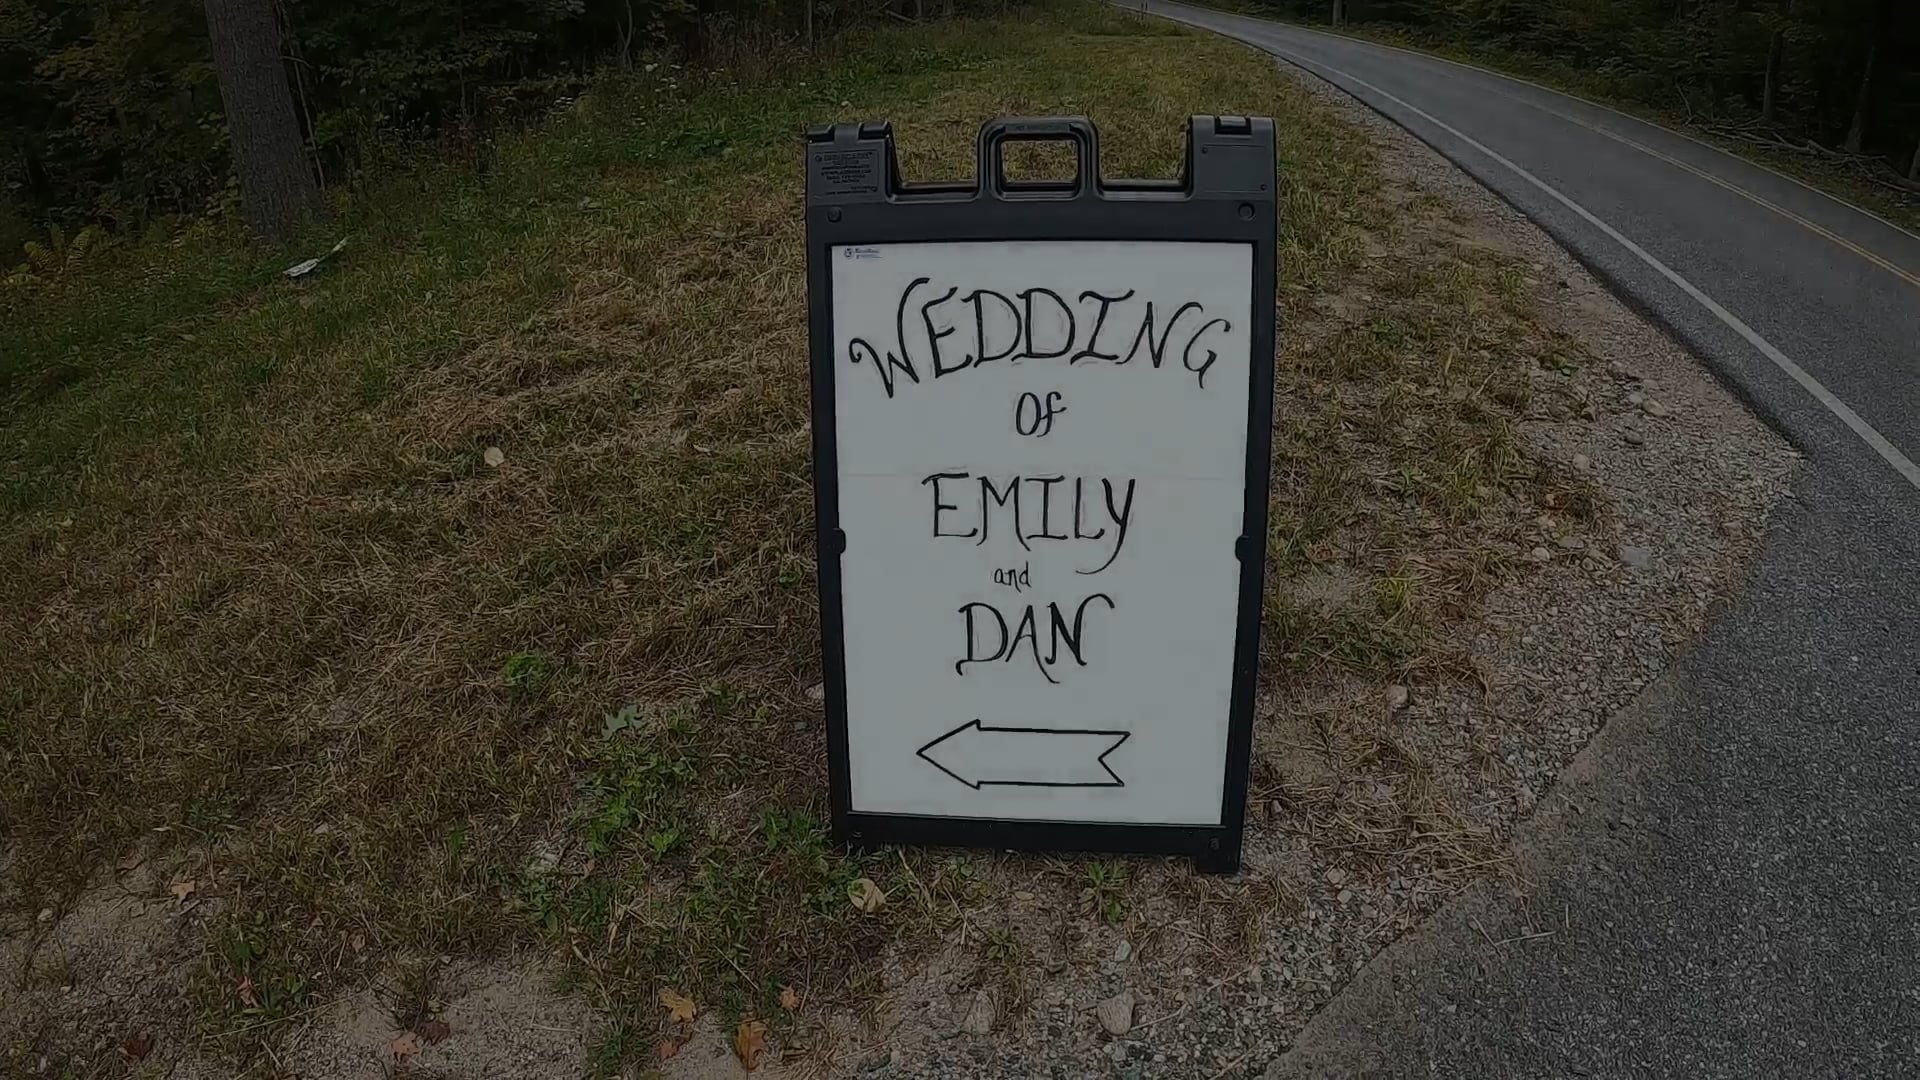 WEDDING
Of
EMILY
and
DAN